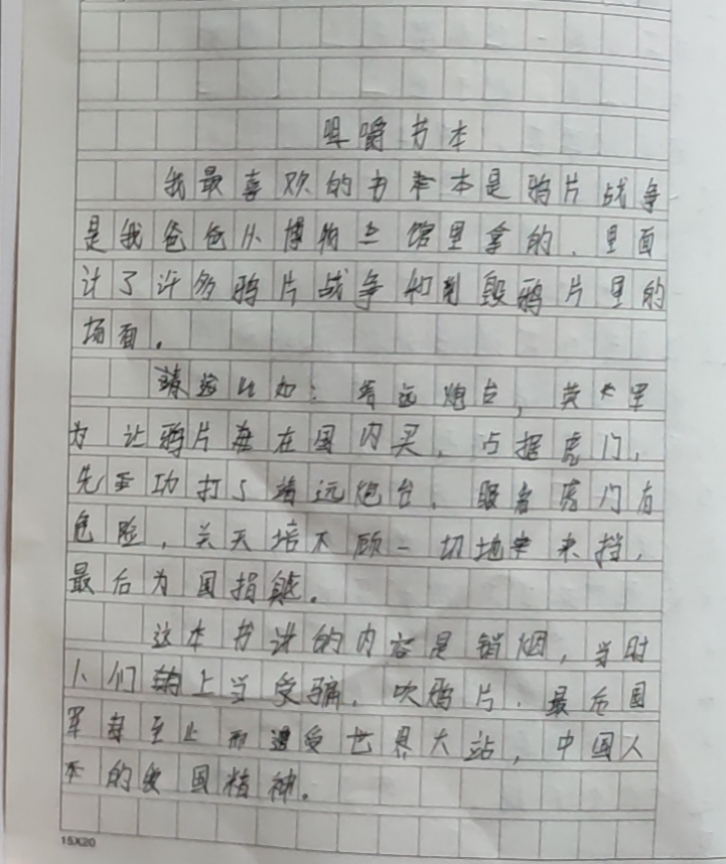 咀嚼书本
我最喜欢的书本是鸦片战争
是我爸爸从博物馆里拿的、里面
讲了许多鸦片战争和毁鸦片里的
场面。
比如：靖远炮台，英军
为让鸦片在国内买，占据虎门，
先攻打了靖远炮台、眼看虎门有
危险，关天培不顾一切地来挡，
最后为国捐
这本书讲的内容是销烟，当时
人们上当受骗，吹鸦片，最后国
军至止而遭受世界大站，中国人
的爱国精神。
15X20